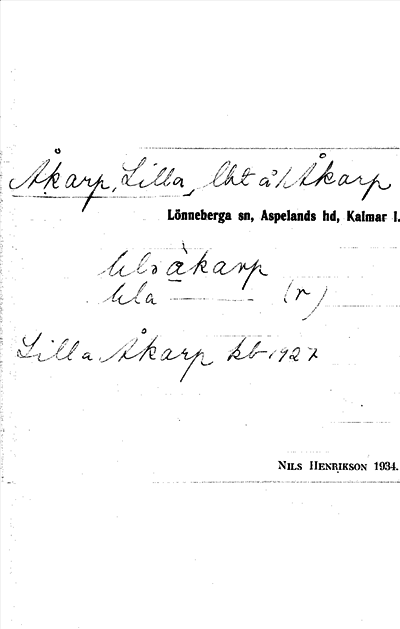 Åkarp, Lilla, lht å Åkarp
Lönneberga sn, Aspelands hd, Kalmar l.
àkarp
(r)
Lilla Åkarp kb 1927
NILS HENRIKSON 1934.